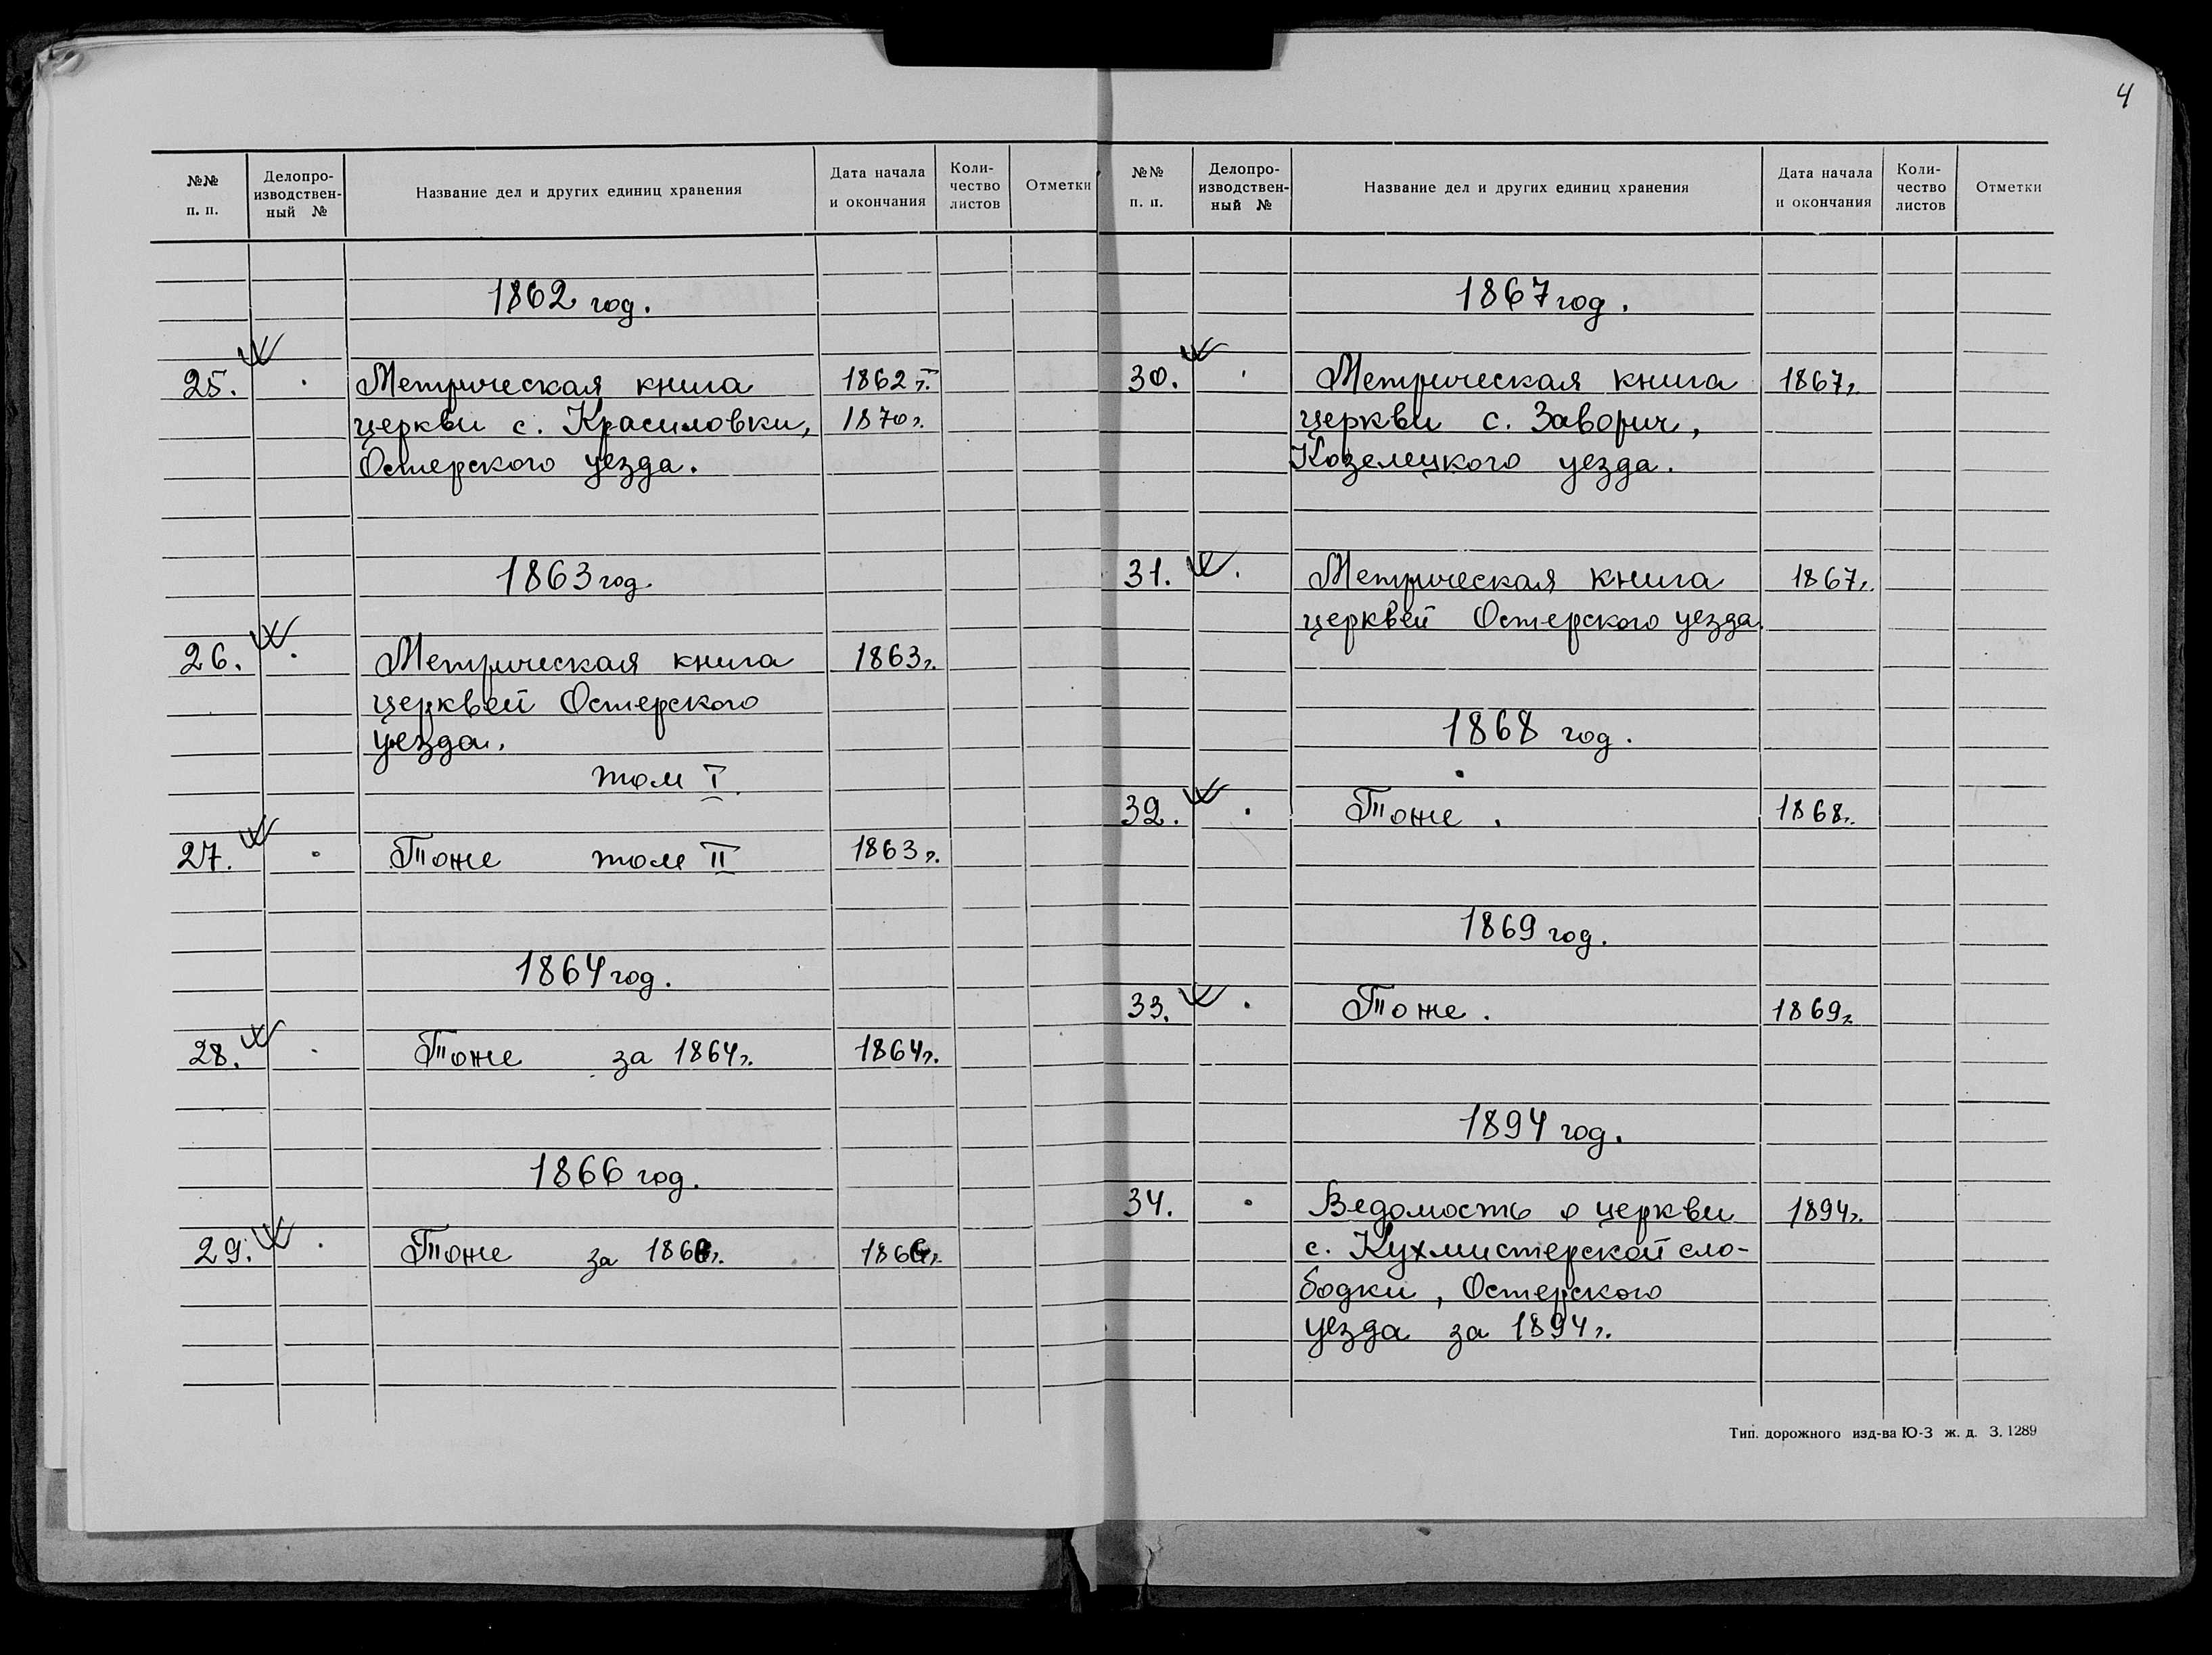 4
№№ п. п.
Делопро-
изводствен-
ный №
Название дел и других единиц хранения
Дата начала
и окончания
Коли-
чество
листов
Отметки
1862 год.
25. Метрическая книга 1862 г.
церкви с. Красиловки, 1870 г.
Остерского уезда.
1863 год.
26. Метрическая книга 1863 г.
церквей Остерского
уезда.
том I
27. Тоже том II 1863 г.
1864 год.
28. Тоже за 1864 г. 1864 г.
1866 год.
29. Тоже за 1866 г. 1866 г.
№№ п. п.
Делопро-
изводствен-
ный №
Название дел и других единиц хранения
Дата начала
и окончания
Коли-
чество
листов
Отметки
1867 год.
30. Метрическая книга 1867 г.
церкви с. Заворич,
Козелецкого уезда.
31. Метрическая книга 1867 г.
церквей Остерского уезда.
1868 год.
32. Тоже. 1868 г.
1869 год.
33. Тоже. 1869 г.
1894 год.
34. Ведомость о церкви 1894 г.
с. Кухмистерской сло-
бодки, Остерского
уезда за 1894 г.
Тип. дорожного изд-ва Ю-З ж. д. З. 1289